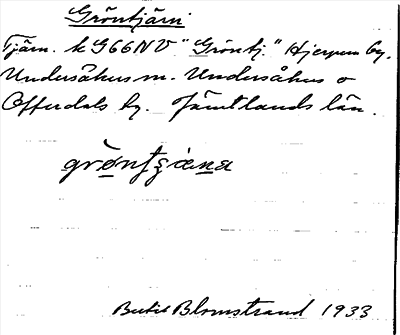 Gröntjärn
Tjärn. k G66NV "Gröntj." Hjerpens by.
Undersåkers sn. Undersåkers o
Offerdals tg. Jämtlands län.
Bertil Blomstrand 1933